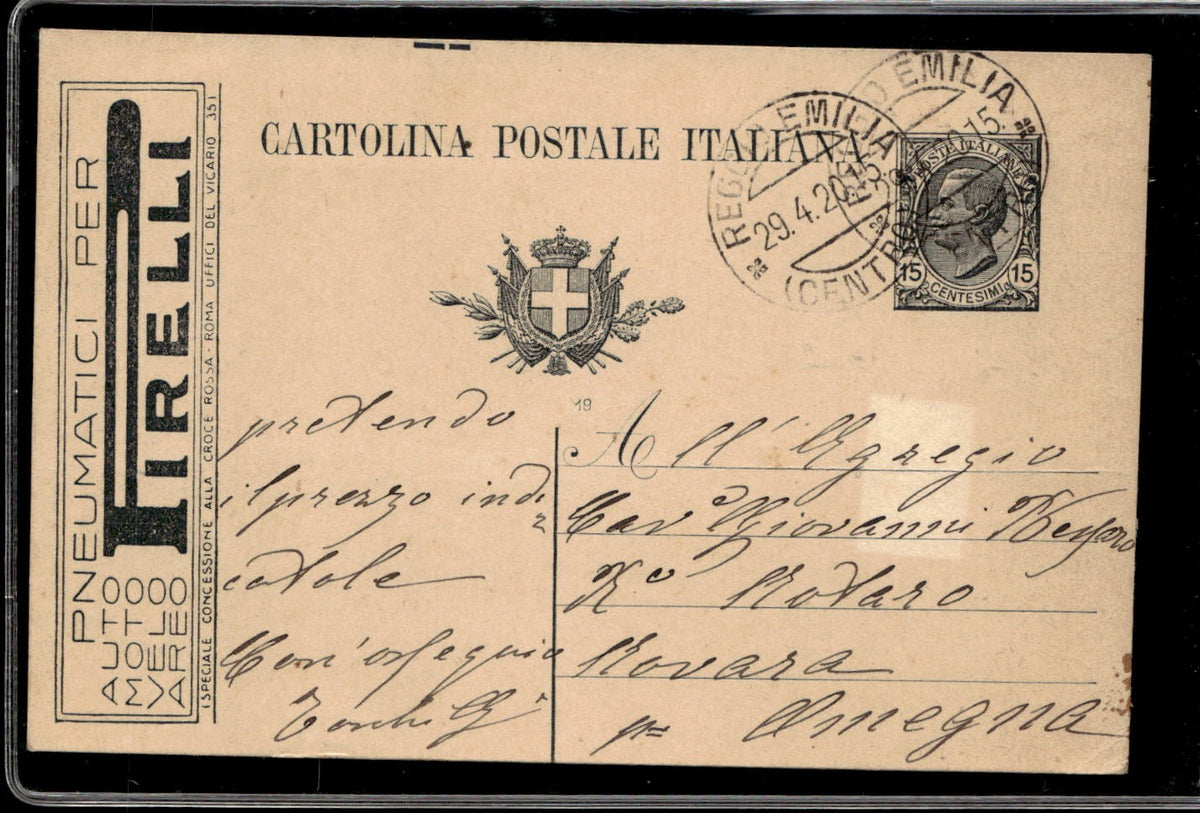 PNEUMATICI PER
PIRELLI
AUTO
MOTO
VELO
AREO
(SPECIALE CONCESSIONE ALLA CROCE ROSSA - ROMA UFFICI DEL VICARIO 35)
CARTOLINA POSTALE ITALIANA
REGGIO EMILIA
29.4.20 15
(CENTRO)
EMILIA
POSTE ITALIANE
15 15
CENTESIMI
19
pretendo
il prezzo indi
catole
Con' ossequio
A ll' Egregio
Cav Giovanni
R° Notaro
Novara
per Omegna